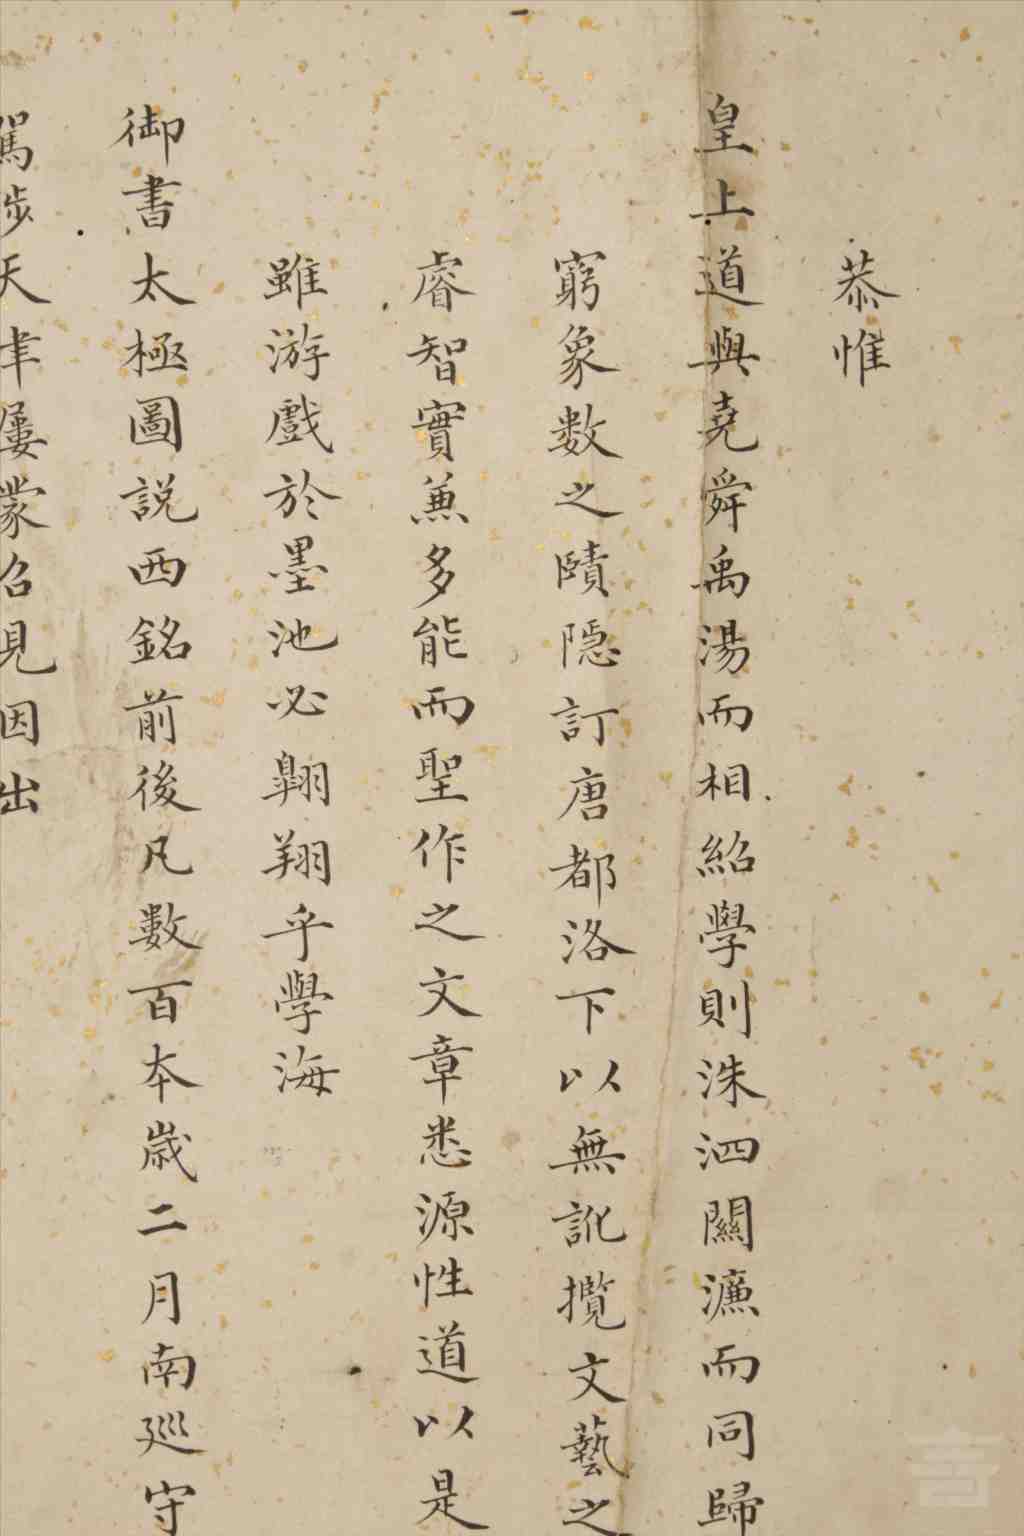 恭惟
皇上道與堯舜禹湯而相紹學則洙泗關濂而同歸
窮象數之賾隱訂唐都洛下以無訛攬文藝之
睿智實兼多能而聖作之文章悉源性道以是
雖游戲於墨池必翱翔乎學海
御書太極圖說西銘前後凡數百本歲二月南巡守
駕涉天津屢蒙召見因出